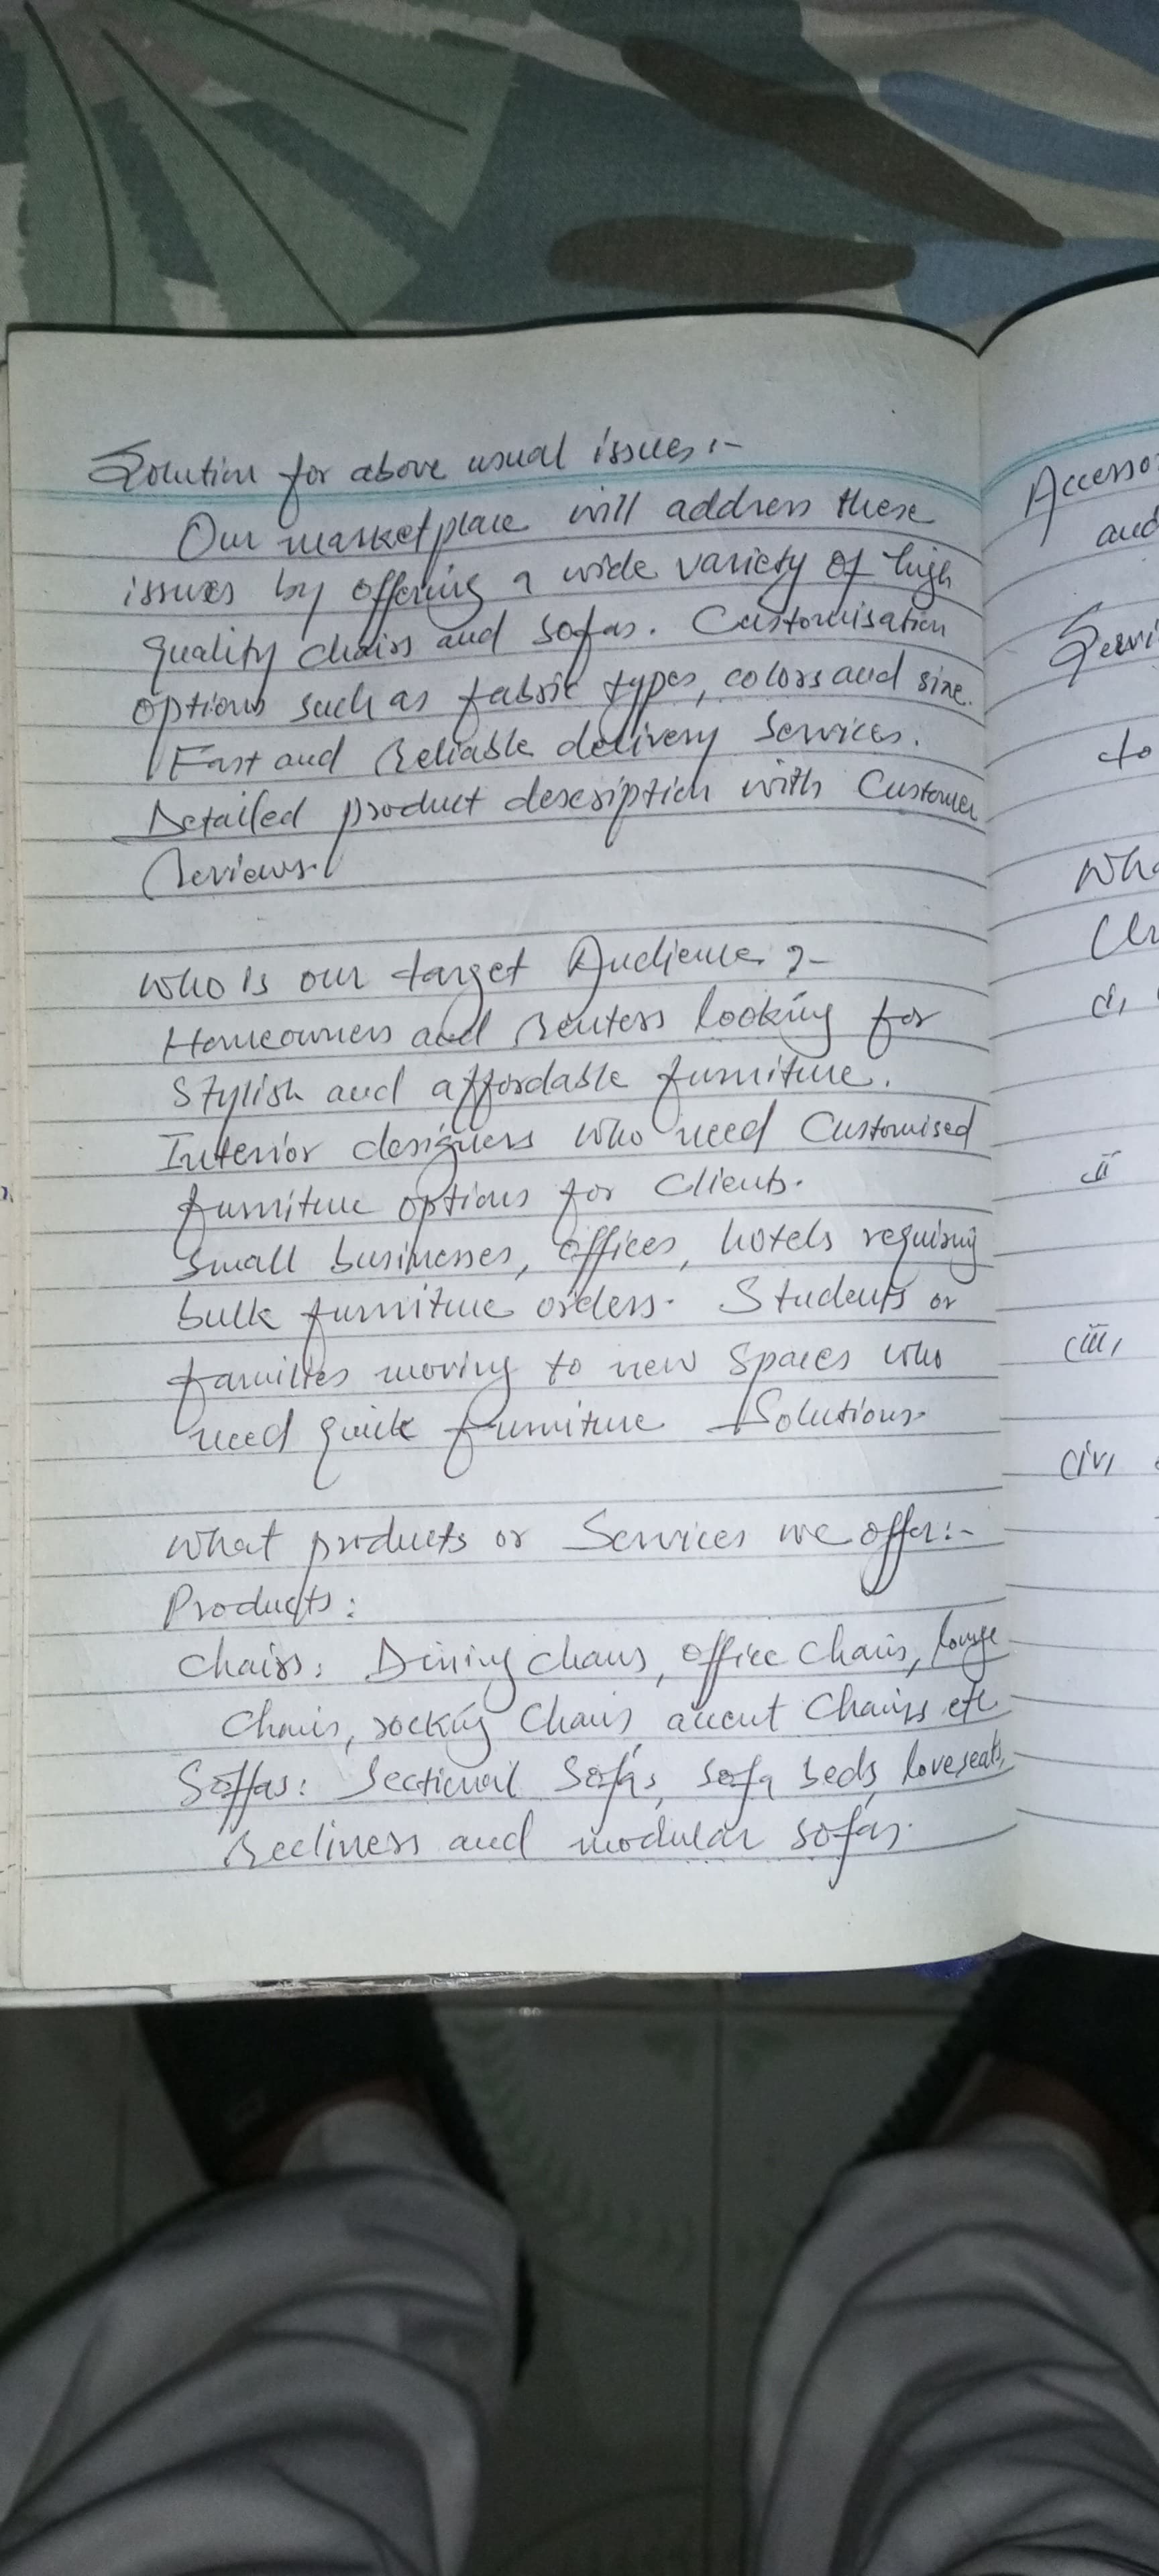 Solution for above usual issues :-
Our marketplace will address these
issues by offering a wide variety of high
quality chairs and sofas. Customisation
options such as fabric types, colors and size.
Fast and Reliable delivery Services.
Detailed product description with Customer
Reviews.
Who Is our target Audience ?-
Homeowners and Renters looking for
Stylish and affordable furniture.
Interior designers who need Customised
furniture options for Clients.
Small businesses, offices, hotels requiring
bulk furniture orders. Students or
families moving to new Spaces who
need quick furniture Solutions.
What products or Services we offer:-
Products :
Chairs: Dining chairs, office Chairs, lounge
Chairs, rocking Chairs, accent Chairs etc
Soffas: Sectional Sofas, sofa beds, loveseats,
Recliners and modular sofas.
Accesso
and
Servi
to
Wha
(i)
ii
(iii)
(iv)